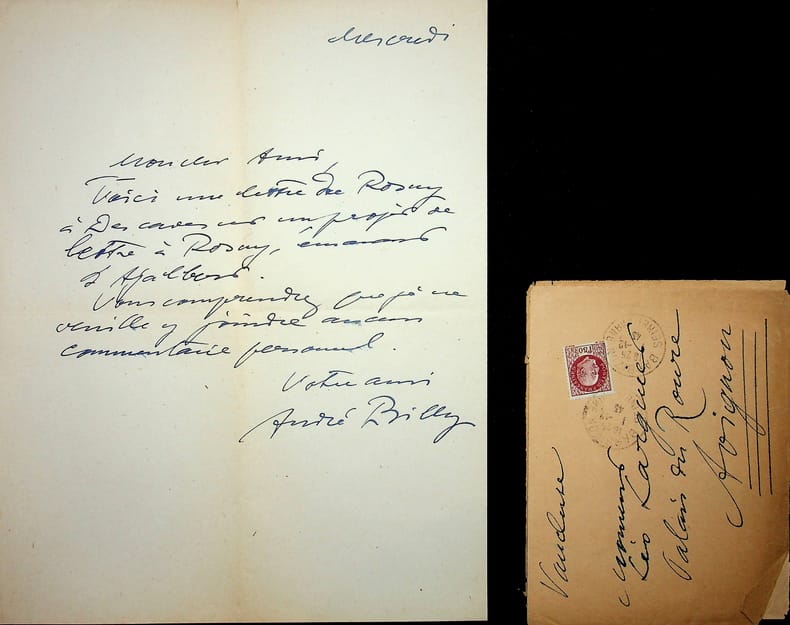 Mercredi
Mon cher Ami,
Voici une lettre de Rosny
à Descaves et un projet de
lettre à Rosny, émanant
d'Ajalbert.
Vous comprendrez que je ne
veuille y joindre aucun
commentaire personnel.
Votre ami
André Billy
Monsieur
Léo Larguier
Palais du Roure
Avignon
Vaucluse
1F50